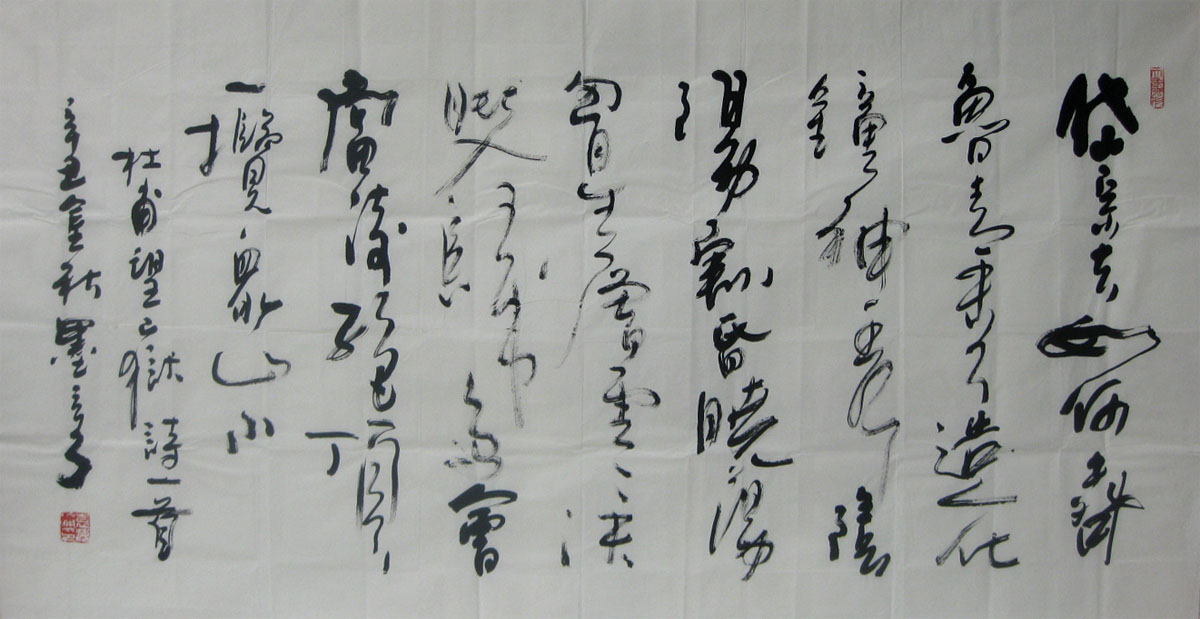 岱宗夫如何齊
魯青未了造化
鐘神秀陰
陽割昏曉蕩
胷生層雲決
眦入歸鳥會
當凌絕頂
一攬眾山小
杜甫望嶽詩一首
辛丑金秋墨